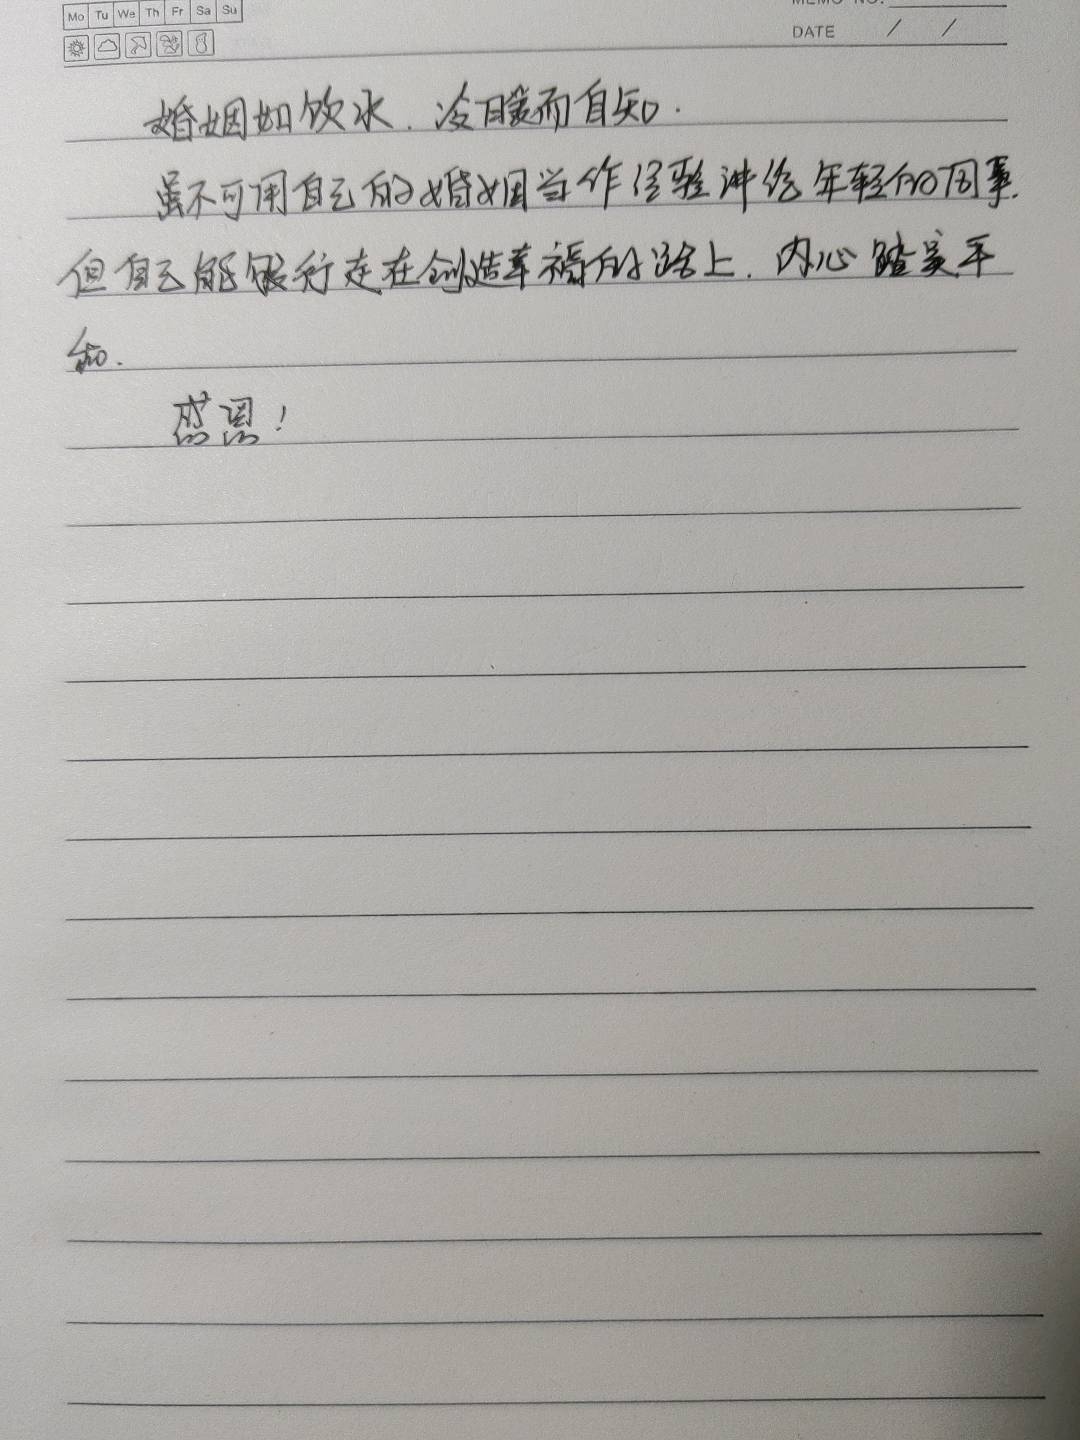 Mo Tu We Th Fr Sa Su
MEMO NO.
DATE / /
婚姻如饮水.冷暖而自知.
虽不可用自己的婚姻当作经验讲给年轻的同事.
但自己能够行走在创造幸福的路上.内心踏实平
和.
感恩!